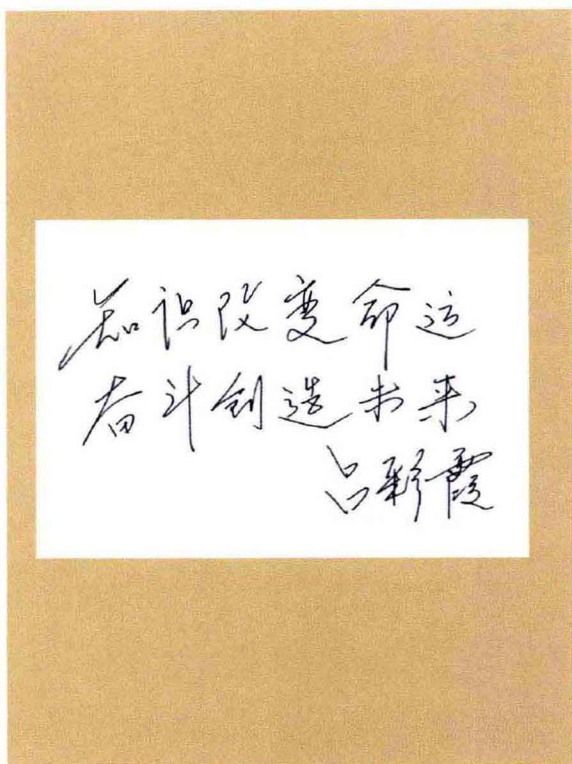 知识改变命运
奋斗创造未来
吕彩霞